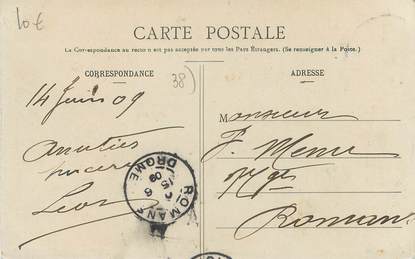 10€
CARTE POSTALE
La Correspondance au recto n'est pas acceptée par tous les Pays Étrangers. (Se renseigner à la Poste.)
CORRESPONDANCE
38)
ADRESSE
14 Juin 09
Amitiés
sincères
Léon
ROMANS
DROME
15 - 6
09
Monsieur
P.
Romans